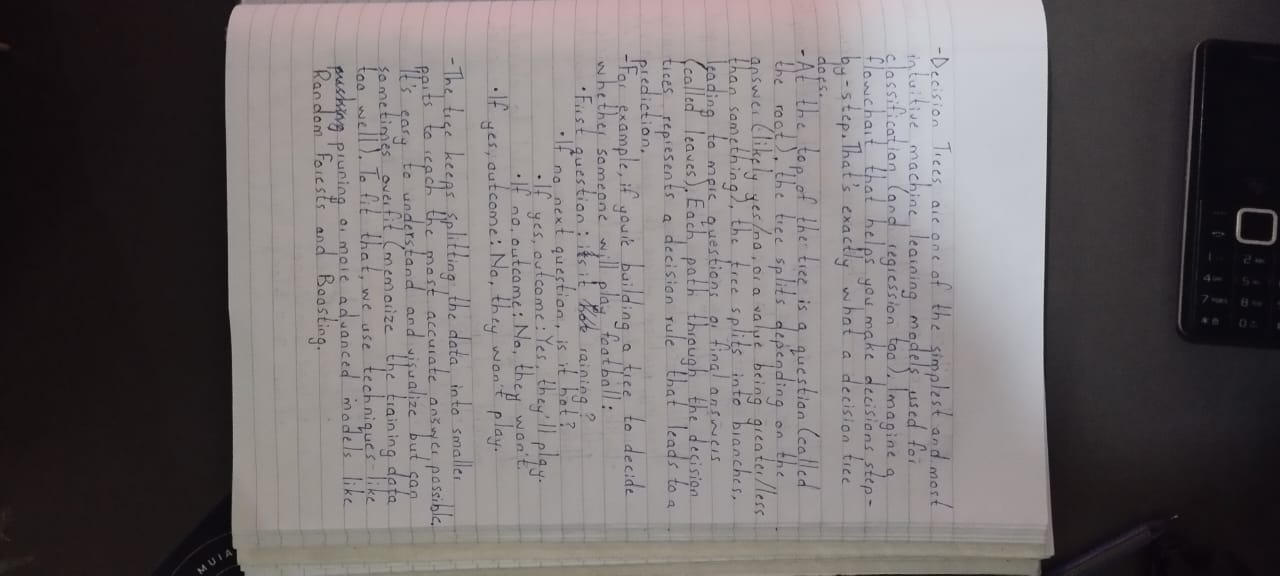 - Decision Trees are one of the simplest and most
intuitive machine learning models used for
classification (and regression too). Imagine a
flowchart that helps you make decisions step-
by-step. That's exactly what a decision tree
does.
- At the top of the tree is a question (called
the root), the tree splits depending on the
answer (likely yes/no, or a value being greater/less
than something), the tree splits into branches,
leading to more questions or final answers
(called leaves). Each path through the decision
trees represents a decision rule that leads to a
prediction.
- For example, if you're building a tree to decide
whether someone will play football:
• First question: is it raining?
• If no next question, is it hot?
• If yes, outcome: Yes, they'll play.
• If no, outcome: No, they won't.
• If yes, outcome: No, they won't play.
- The tree keeps splitting the data into smaller
parts to reach the most accurate answer possible.
It's easy to understand and visualize but can
sometimes overfit (memorize the training data
too well). To fit that, we use techniques like
pruning or more advanced models like
Random Forests and Boosting.
MUIA